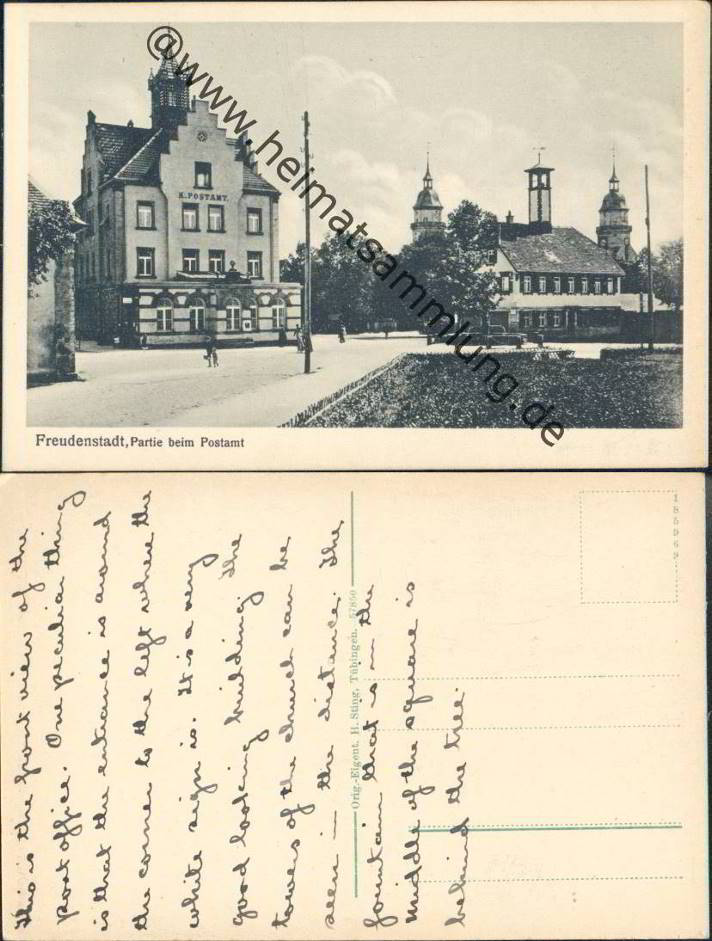 @www.heimatsammlung.de
K. POSTAMT.
Freudenstadt, Partie beim Postamt
This is the front view of the
post office. One peculiar thing
is that the entrance is around
the corner to the left where the
white sign is. It is a very
good looking building. The
towers of the church can be
seen in the distance. The
fountain that is in the
middle of the square is
behind the tree.
Orig.-Eigent. H. Sting, Tübingen. 57850
185969